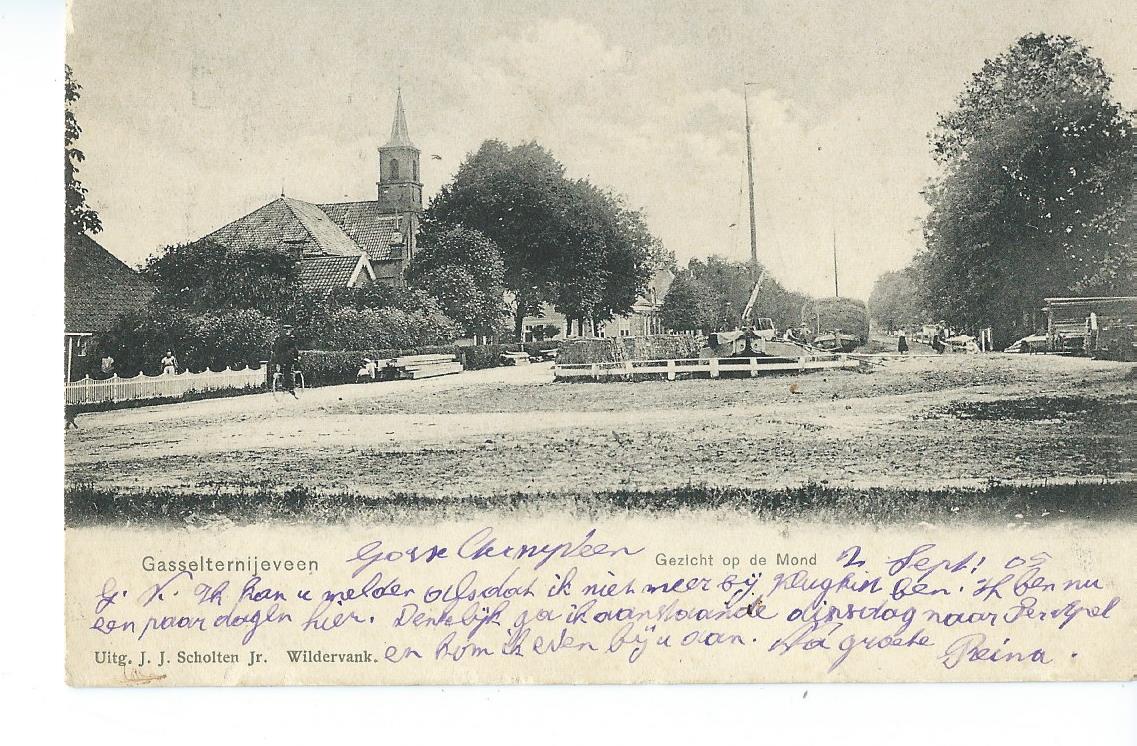 Gasselternijeveen Gezicht op de Mond 2 Sept. 05
G. N. Ik kan u melden alsdat ik niet meer bij ben. Ik ben nu
een paar dagen hier. Denkelijk ga ik aanstaande dinsdag naar
Uitg. J. J. Scholten Jr. Wildervank. en kom ik even bij u aan. Na groete Reina.